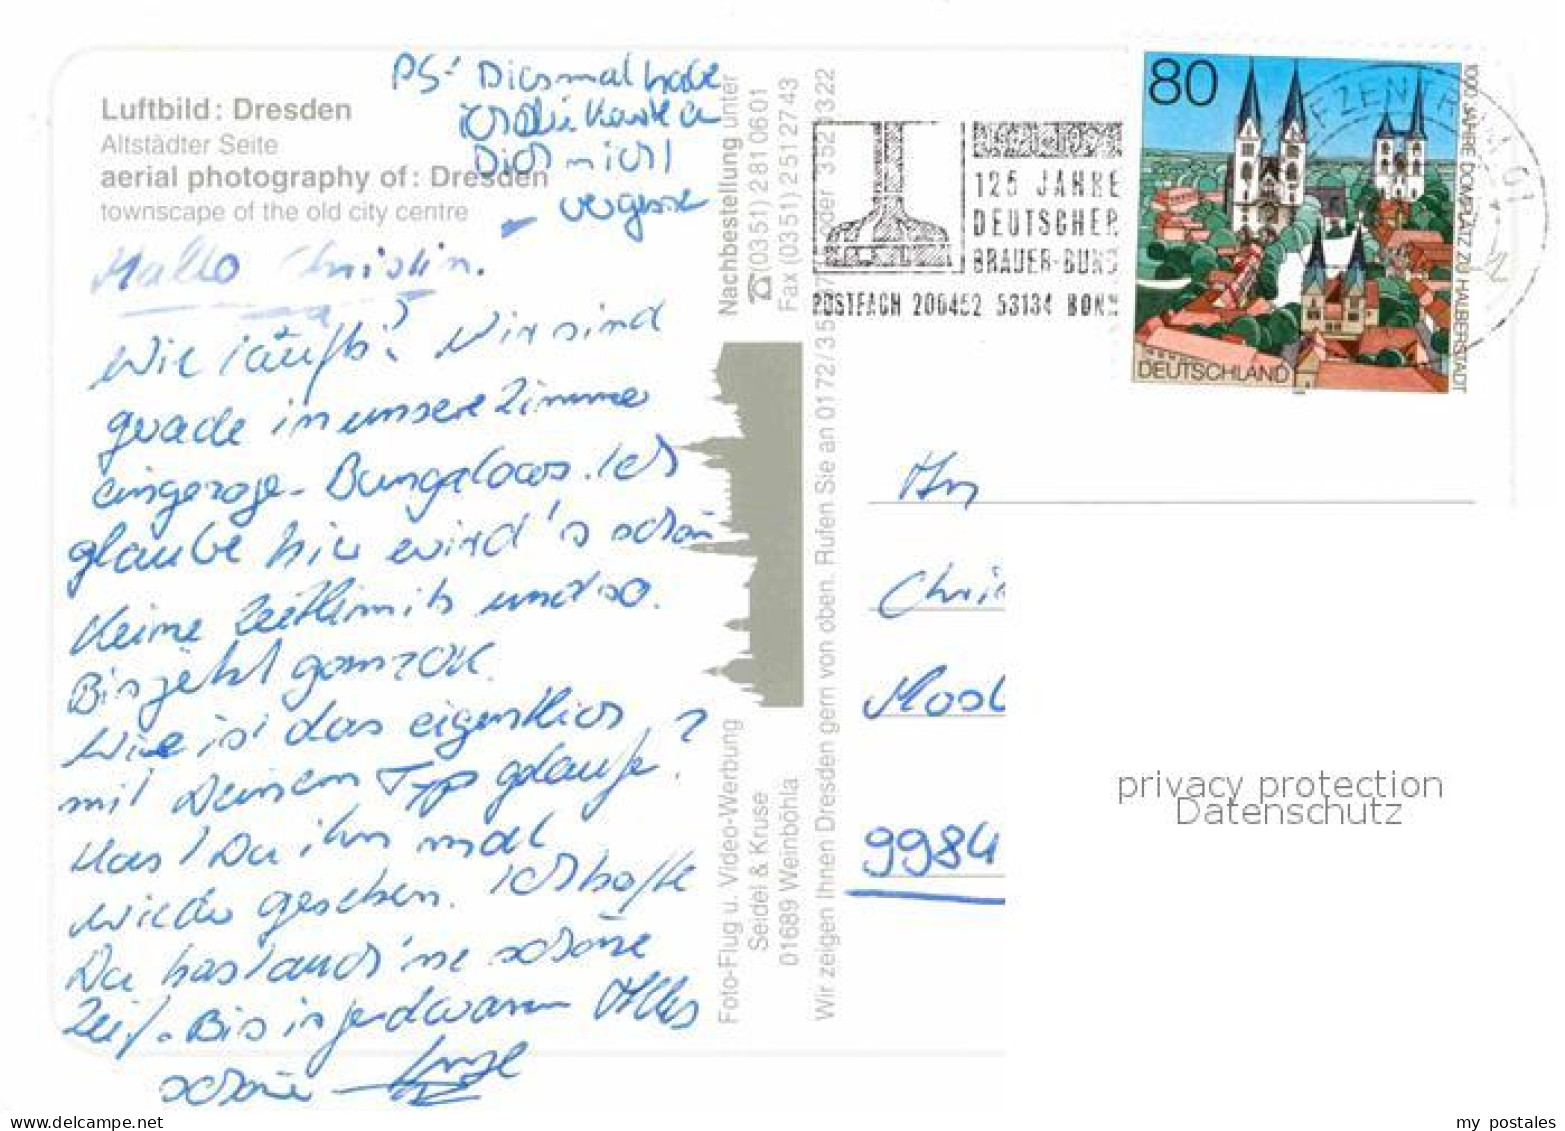 Luftbild: Dresden
Altstädter Seite
aerial photography of: Dresden
townscape of the old city centre
PS: Diesmal habe
ich die Karte an
Dich nicht
vergessen
Hallo Christin.
Wie läuft's? Wir sind
gerade in unsere Zimmer
eingezoge- Bungalows. Ich
glaube hier wird's schön
Keine Zeitlimits und so.
Bis jetzt ganz OK.
Wie ist das eigentlich
mit Deinem Typ gelaufe?
Hast Du ihn mal
wieder gesehen. Ich hoffe
Du hast auch 'ne schöne
Zeit. Bis irgendwann Alles
schöne
Nachbestellung unter
(0351) 281 06 01
Fax (0351) 251 27 43
Foto-Flug u. Video-Werbung
Seidel & Kruse
01689 Weinböhla
Wir zeigen Ihnen Dresden gern von oben. Rufen Sie an 0172/35
125 JAHRE
DEUTSCHER
BRAUER-BUND
POSTFACH 200452 53134 BONN
80
1000 JAHRE DOMPLATZ ZU HALBERSTADT
DEUTSCHLAND
An
Chri
Mosb
9984
privacy protection
Datenschutz
my postales